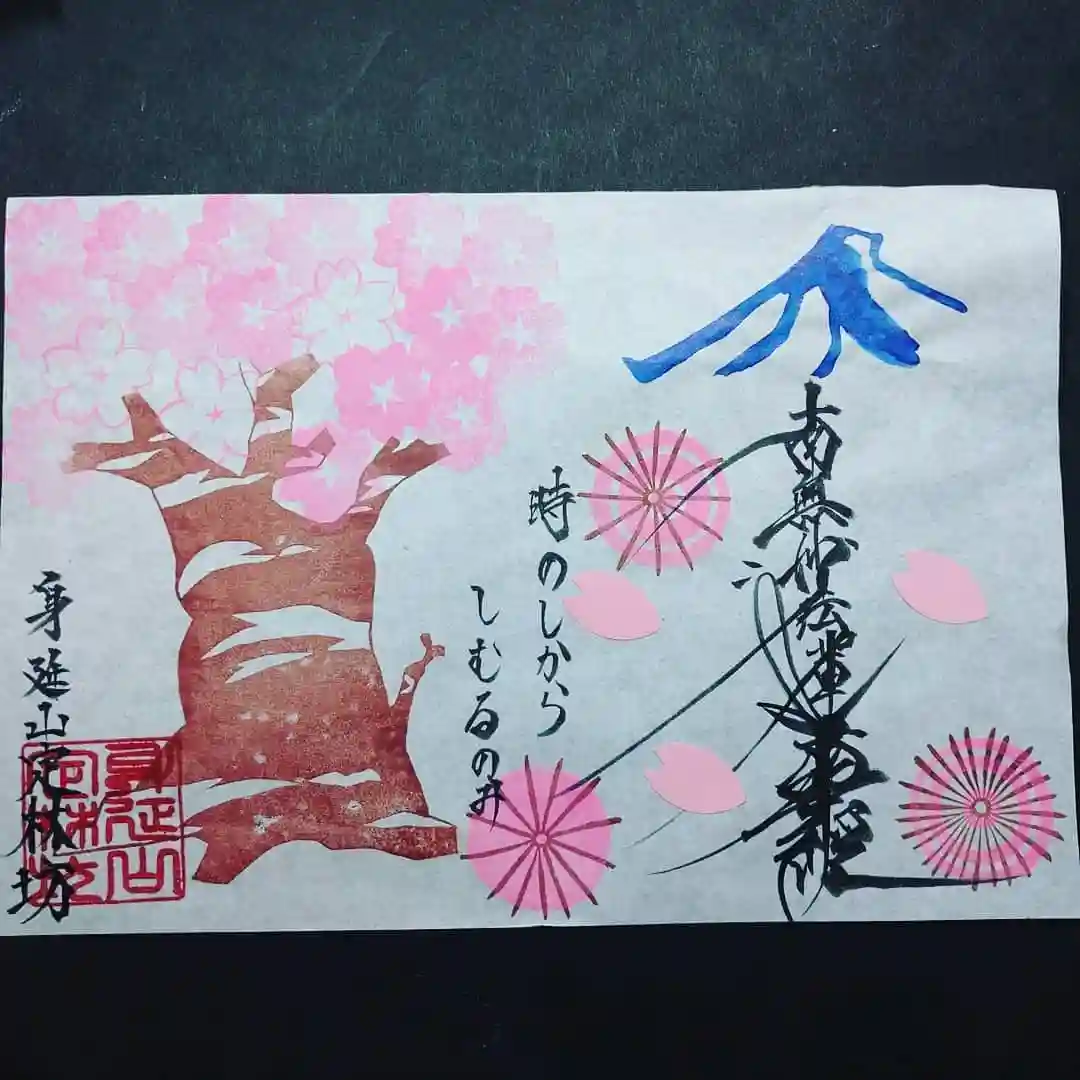 南無妙法蓮華経
時のしから
しむるのみ
身延山定林坊
身延山
定林坊